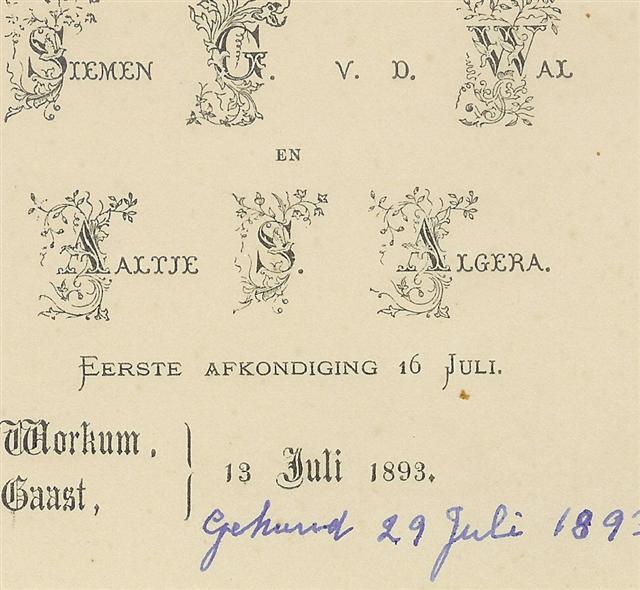 SIEMEN G. V. D. WAL
EN
AALTJE S. ALGERA.
EERSTE AFKONDIGING 16 JULI.
Workum,
Gaast,
13 Juli 1893.
Gehuwd 29 Juli 1893